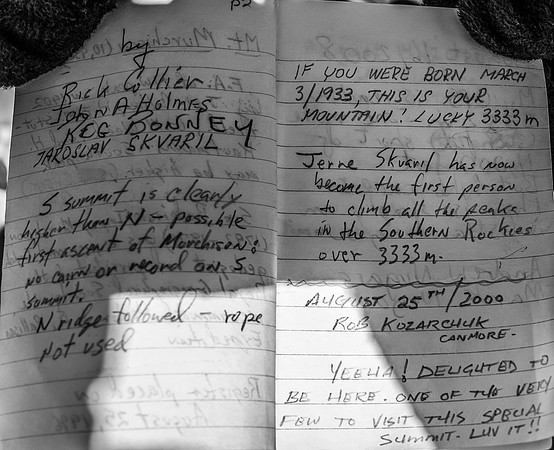 P2
by
Rick Collier
John A Holmes
REG BONNEY
JAROSLAV SKVARIL
S summit is clearly
higher than N - possible
first ascent of Murchison:
no cairn or record on S
summit.
N ridge followed - rope
not used
IF YOU WERE BORN MARCH
3/1933, THIS IS YOUR
MOUNTAIN! LUCKY 3333m
Jerre Skvaril has now
become the first person
to climb all the peaks
in the Southern Rockies
over 3333m.
AUGUST 25TH/2000
ROB KOZARCHUK
CANMORE-
YEEHA! DELIGHTED TO
BE HERE. ONE OF THE VERY
FEW TO VISIT THIS SPECIAL
SUMMIT. LUV IT!!